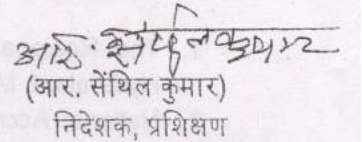 आर. सेंथिल कुमार
(आर. सेंथिल कुमार)
निदेशक, प्रशिक्षण